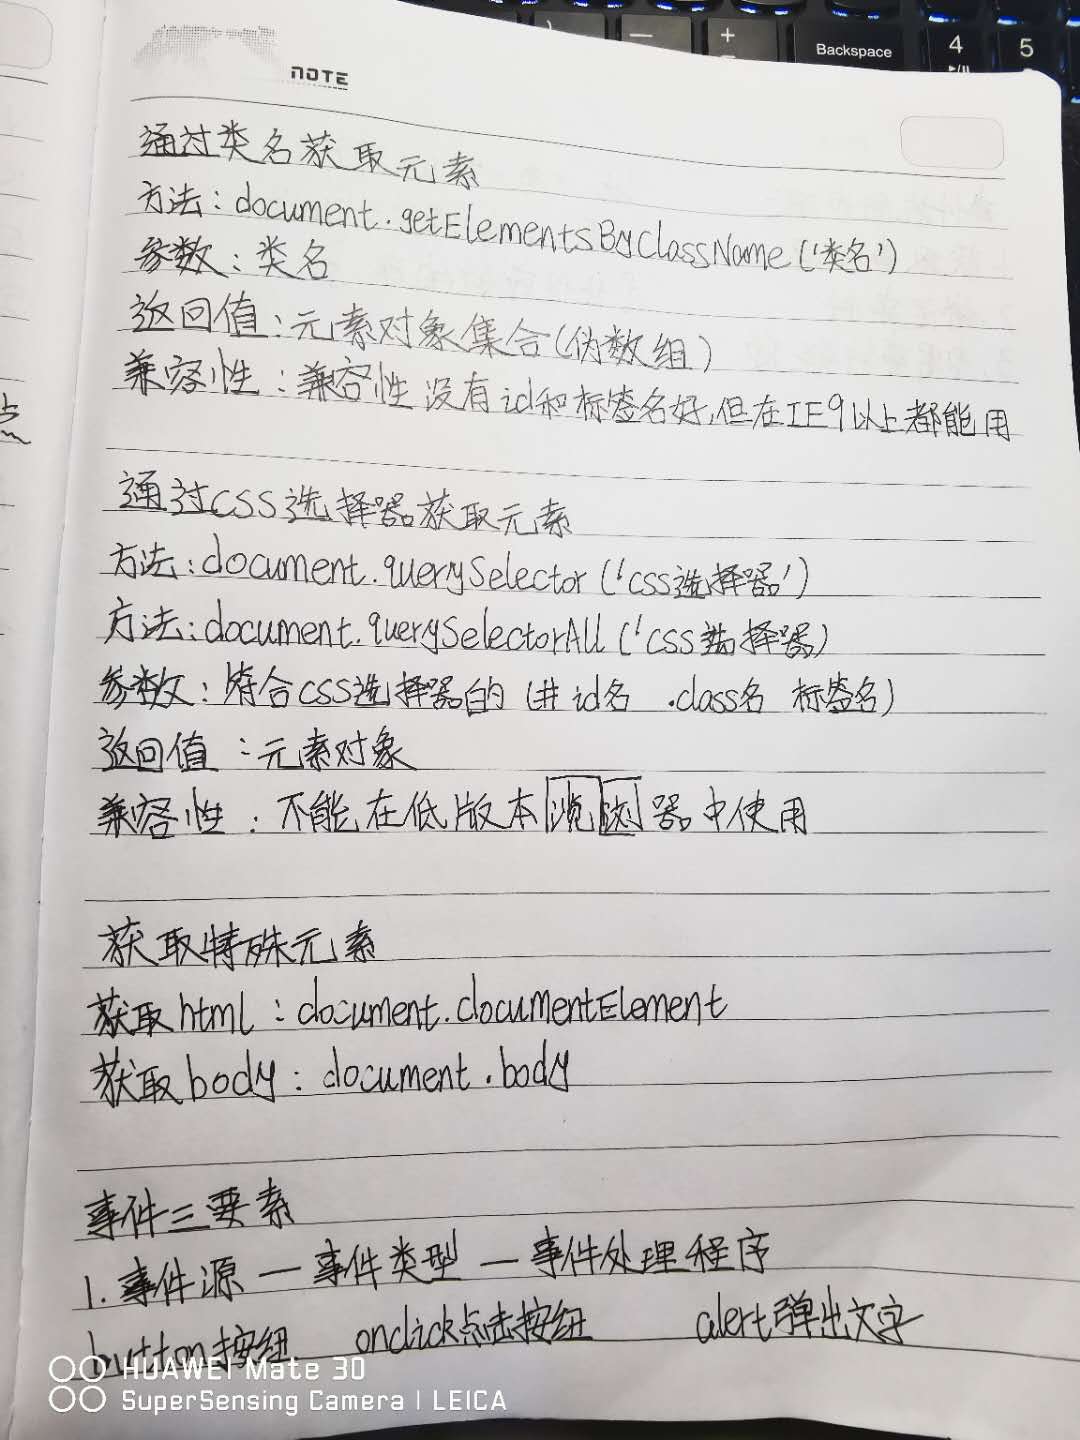 Backspace
4
5
NOTE
通过类名获取元素
方法：document.getElementsByClassName('类名')
参数：类名
返回值：元素对象集合(伪数组)
兼容性：兼容性没有id和标签名好,但在IE9以上都能用
通过CSS选择器获取元素
方法：document.querySelector('css选择器')
方法：document.querySelectorAll('css选择器)
参数：符合css选择器的(井id名 .class名 标签名)
返回值：元素对象
兼容性：不能在低版本浏览器中使用
获取特殊元素
获取html：document.documentElement
获取body：document.body
事件三要素
1.事件源一事件类型一事件处理程序
button按钮 onclick点击按钮 alert弹出文字
HUAWEI Mate 30
SuperSensing Camera | LEICA